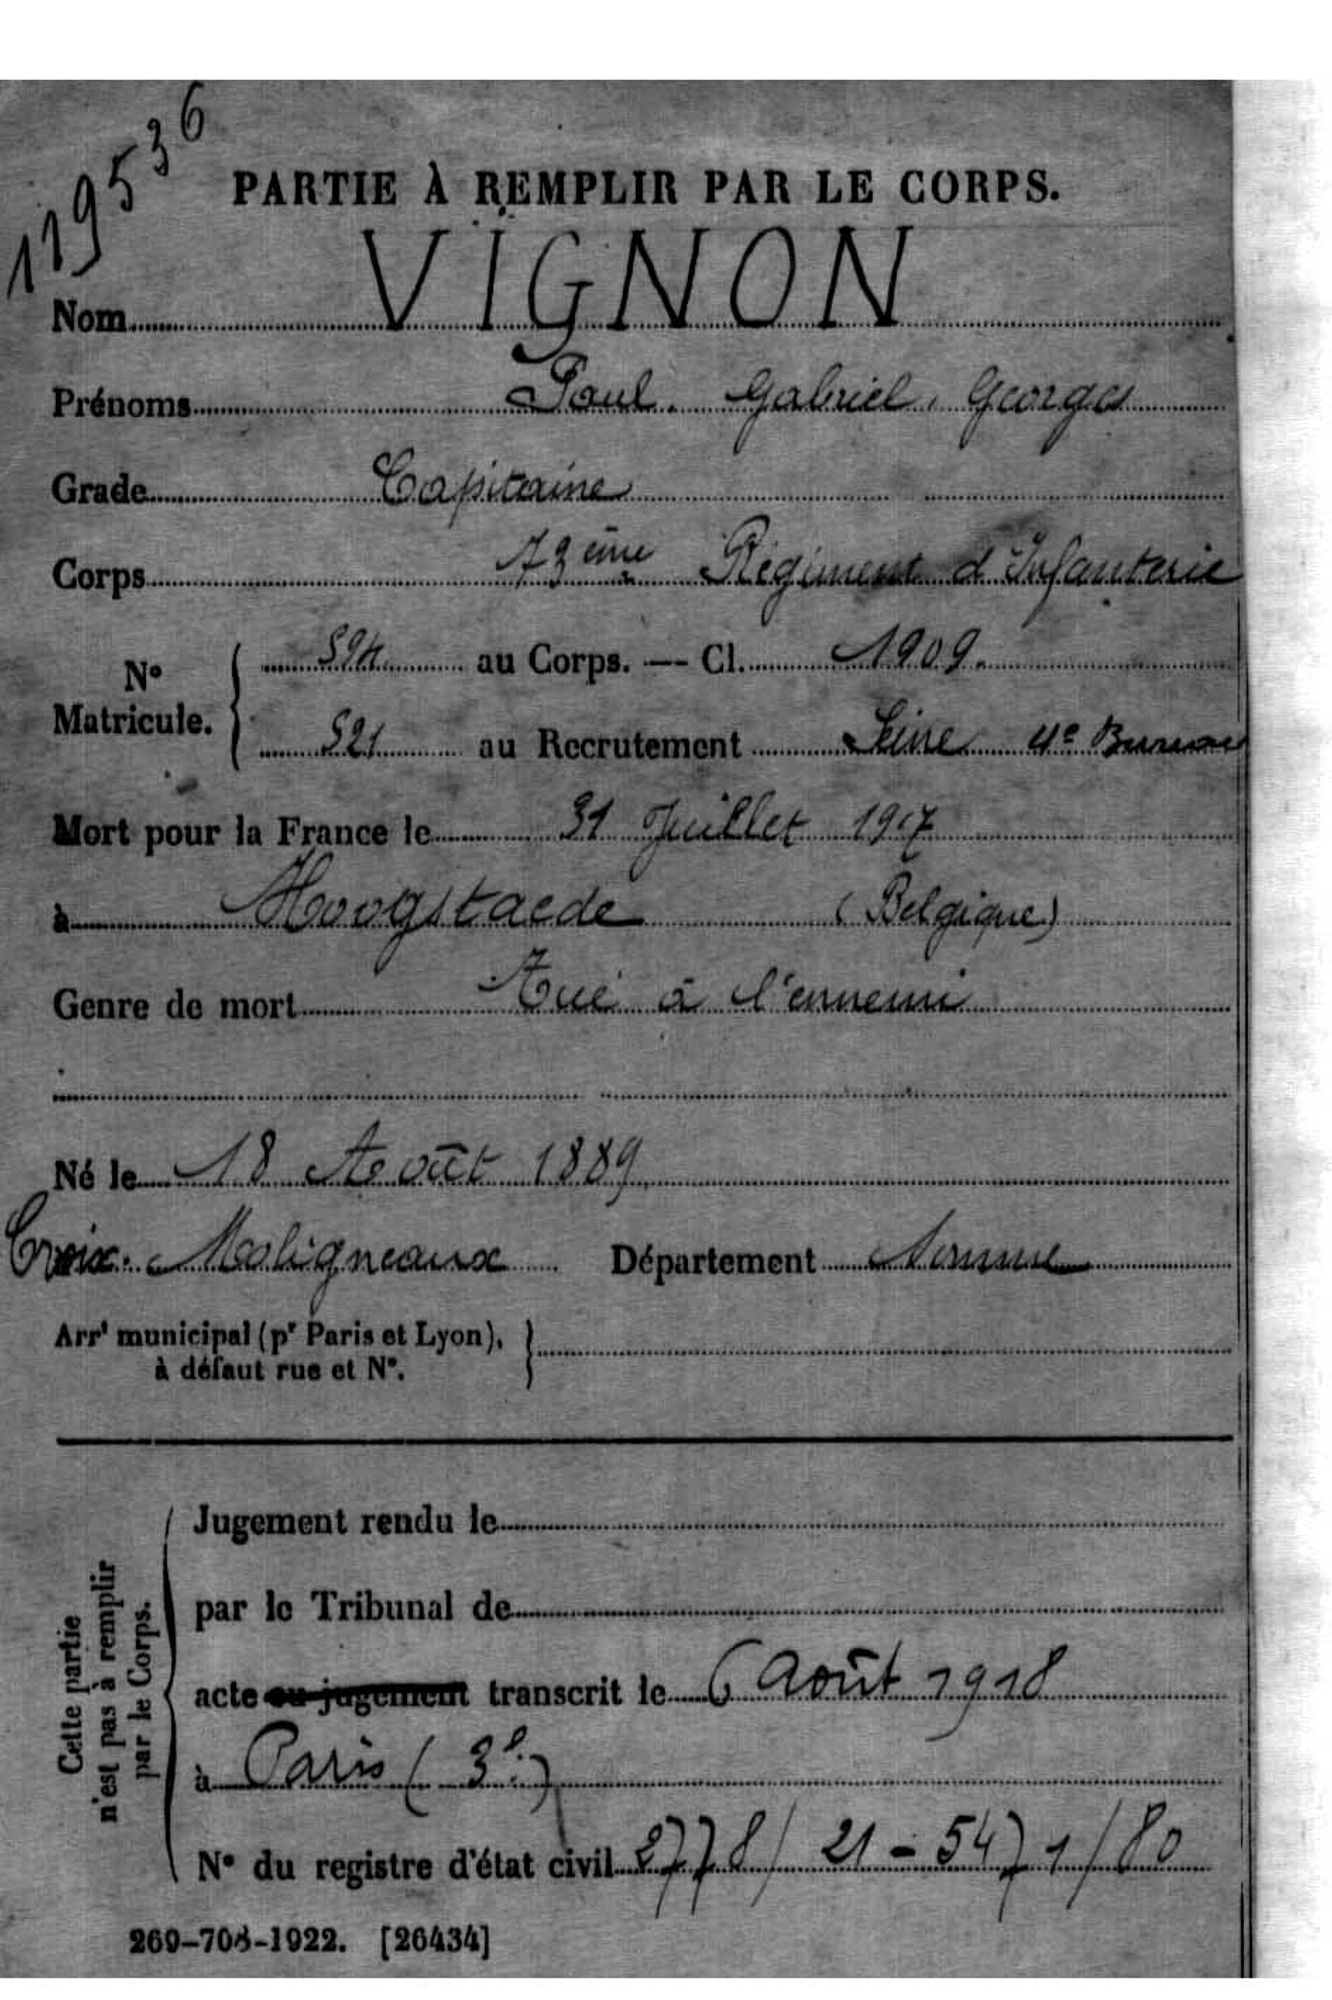 119536
PARTIE À REMPLIR PAR LE CORPS.
Nom VIGNON
Prénoms Paul. Gabriel, Georges
Grade Capitaine
Corps 73ème Régiment d'Infanterie
N° Matricule. 594 au Corps. — Cl. 1909.
521 au Recrutement Seine 4e Bureau
Mort pour la France le 31 Juillet 1917
à Hoogstaede (Belgique)
Genre de mort Tué à l'ennemi
Né le 18 Août 1889
Croix-Moligneaux Département Somme
Arrt municipal (pr Paris et Lyon),
à défaut rue et N°.
Cette partie
n'est pas à remplir
par le Corps.
Jugement rendu le
par le Tribunal de
acte ou jugement transcrit le 6 Août 1918
à Paris (3e)
N° du registre d'état civil 2778/21-5471/80
269-708-1922. [26434]